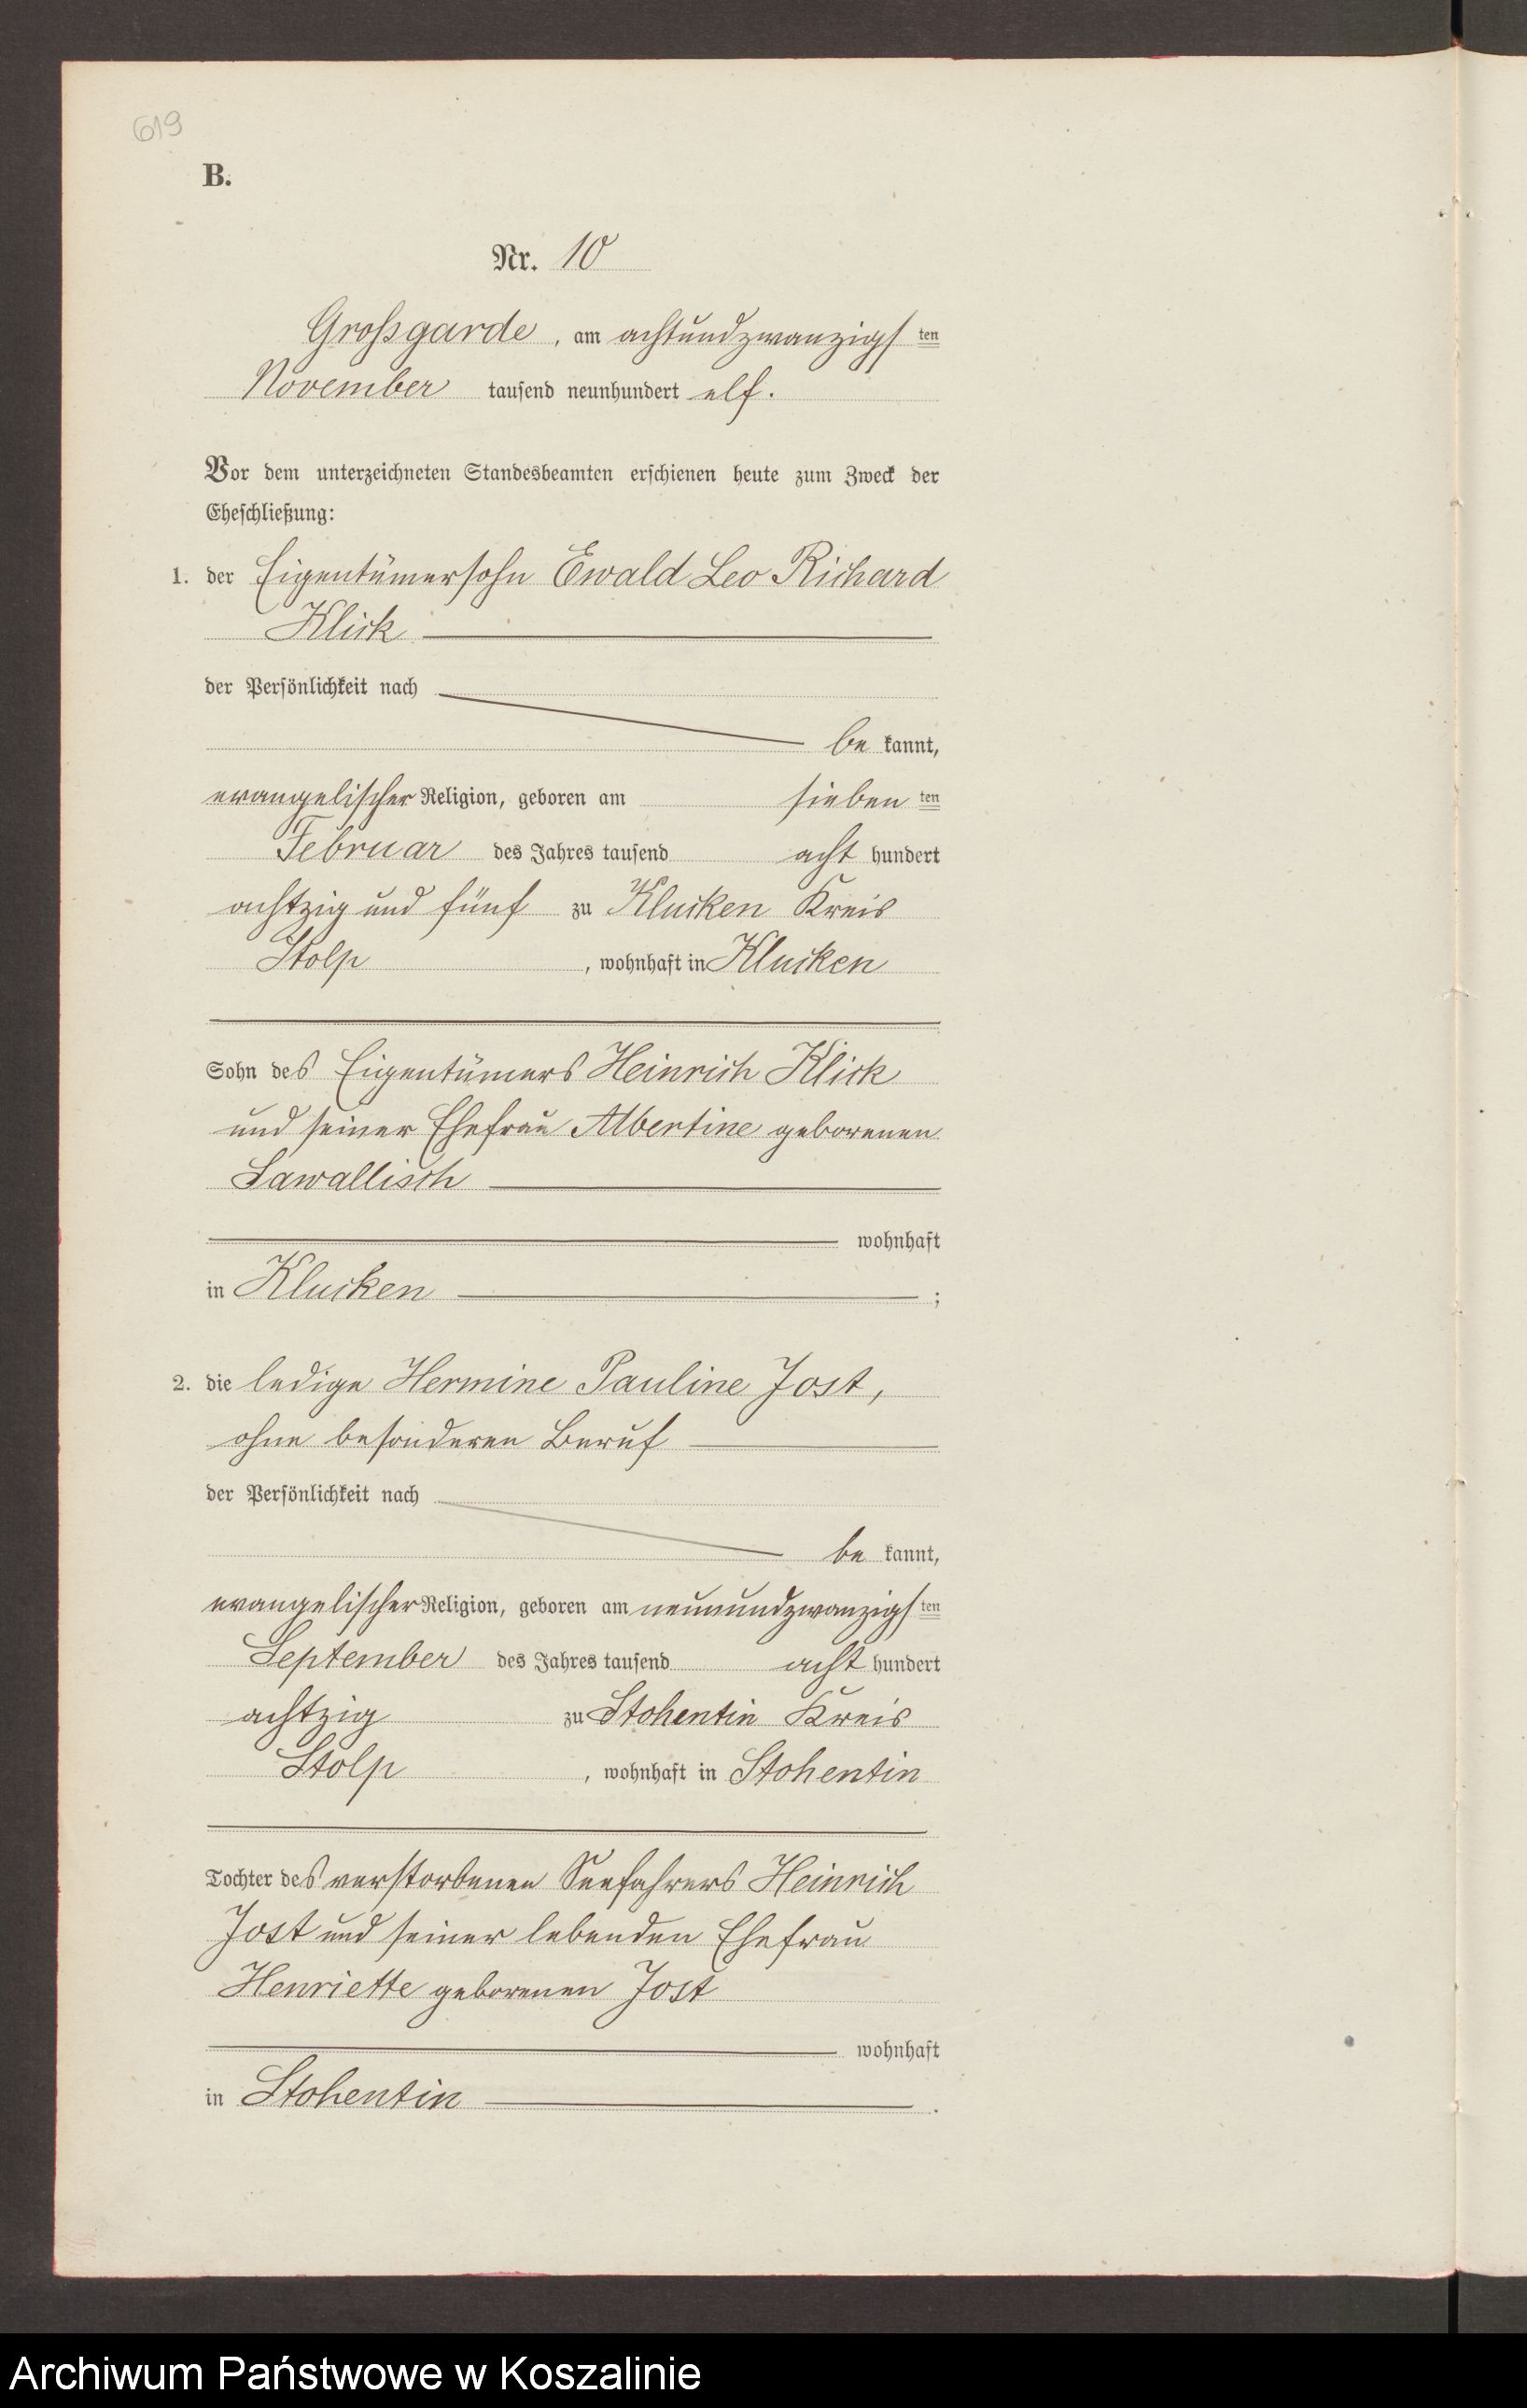 619
B.
Nr. 10
Großgarde, am achtundzwanzigsten
November tausend neunhundert elf.
Vor dem unterzeichneten Standesbeamten erschienen heute zum Zweck der
Eheschließung:
1. der Eigentümersohn Ewald Leo Richard
Klick
der Persönlichkeit nach
be kannt,
evangelischer Religion, geboren am sieben ten
Februar des Jahres tausend acht hundert
achtzig und fünf zu Klucken Kreis
Stolp, wohnhaft in Klucken
Sohn des Eigentümers Heinrich Klick
und seiner Ehefrau Albertine geborenen
Lawallisch
wohnhaft
in Klucken ;
2. die ledige Hermine Pauline Jost,
ohne besonderen Beruf
der Persönlichkeit nach
be kannt,
evangelischer Religion, geboren am neunundzwanzigsten
September des Jahres tausend acht hundert
achtzig zu Stohentin Kreis
Stolp, wohnhaft in Stohentin
Tochter des verstorbenen Seefahrers Heinrich
Jost und seiner lebenden Ehefrau
Henriette geborenen Jost
wohnhaft
in Stohentin .
Archiwum Państwowe w Koszalinie